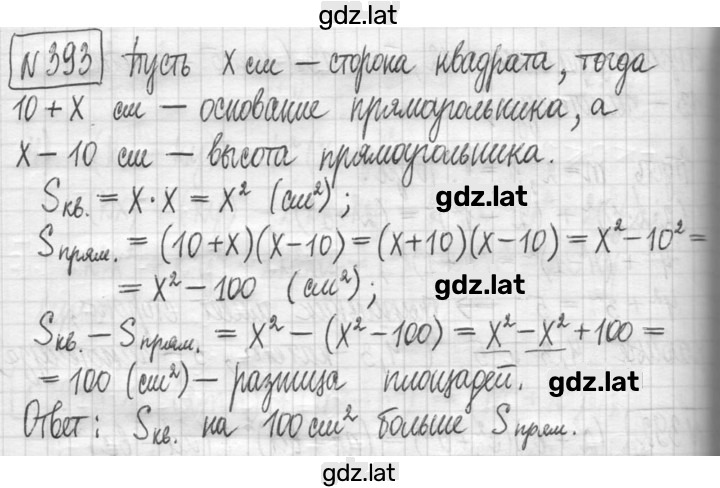 gdz.lat
N 393 Пусть x см — сторона квадрата, тогда
10 + x см — основание прямоугольника, а
x − 10 см — высота прямоугольника.
Sкв. = x · x = x² (см²); gdz.lat
Sпрям. = (10+x)(x−10) = (x+10)(x−10) = x² − 10² =
= x² − 100 (см²); gdz.lat
Sкв. − Sпрям. = x² − (x² − 100) = x² − x² + 100 =
= 100 (см²) — разница площадей. gdz.lat
Ответ: Sкв. на 100 см² больше Sпрям.
gdz.lat